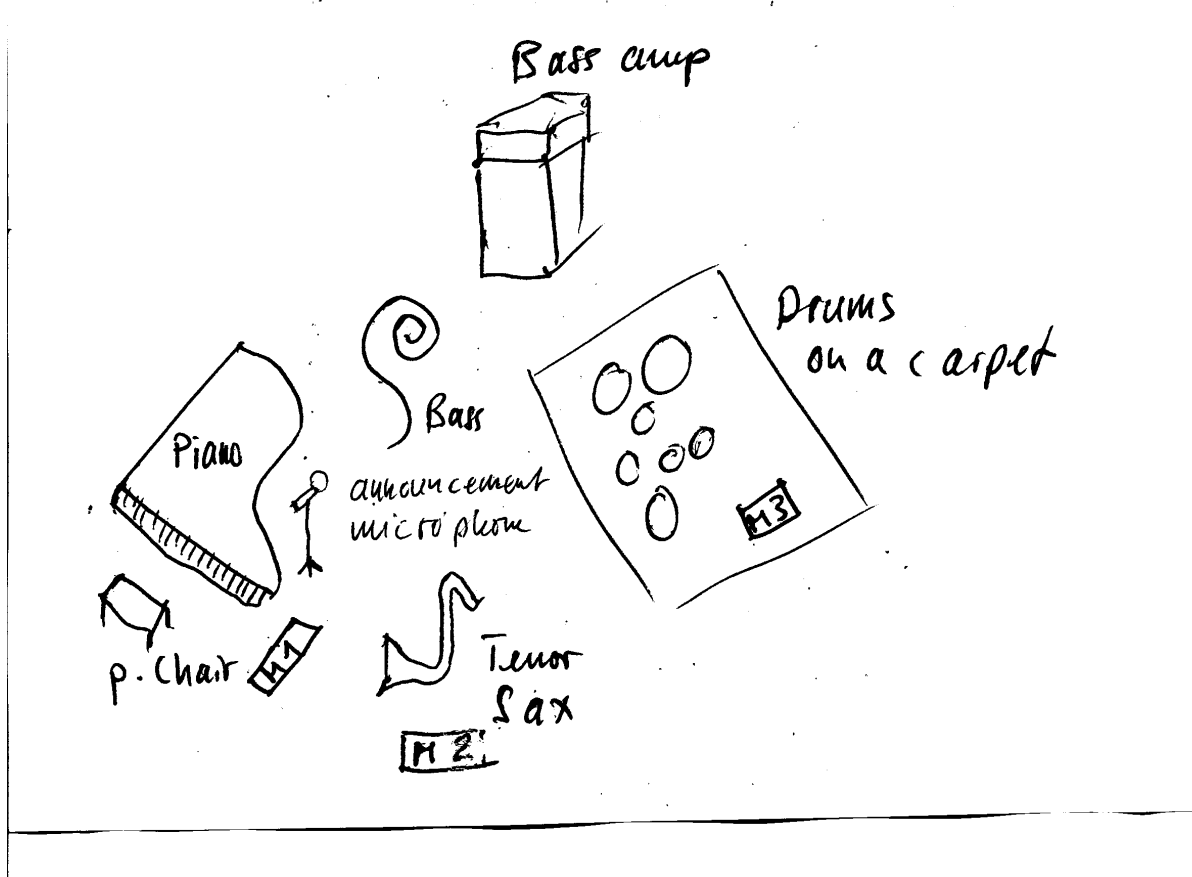 Bass amp
Drums
on a carpet
Piano
Bass
announcement
microphone
M3
p. Chair
M1
Tenor
Sax
M 2